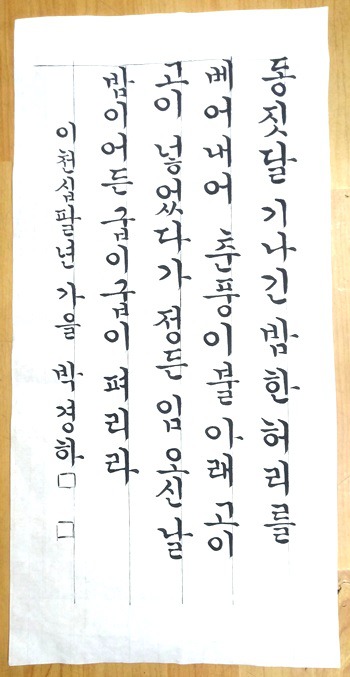 동짓달 기나긴 밤 한 허리를
베어 내어 춘풍 이불 아래 고이
고이 넣었다가 정든 임 오신 날
밤이어든 굽이굽이 펴리라
이천십팔년 가을 박경하